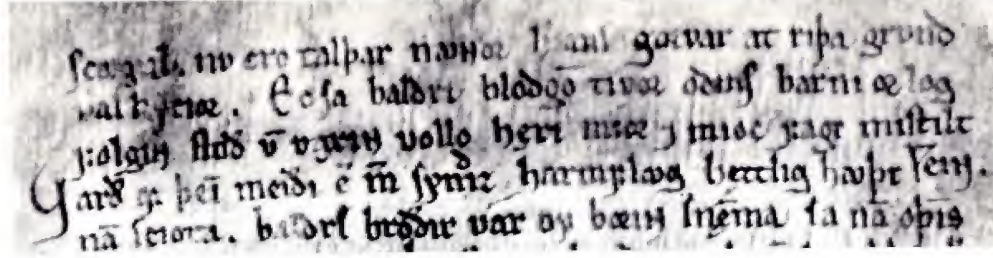 scꜹgul. nv ero talþar nꜹɴor h̄ians gorvar at riþa grvnd
valkyrior. Ec sa baldri blodgō tivor odins barni ørlꜹg
ꝼolgiɴ stoð v̄ vaxiɴ vollo hæri mior ⁊ mioc ꝼagr mistilt
Varð aꝼ þeī meiði e̅ m̄ syndiz harmꝼlꜹg hættlig hꜹþr ēiɴ.
nā sciota. baldrs broðir var oꝼ boriɴ snēma sa nā oþins